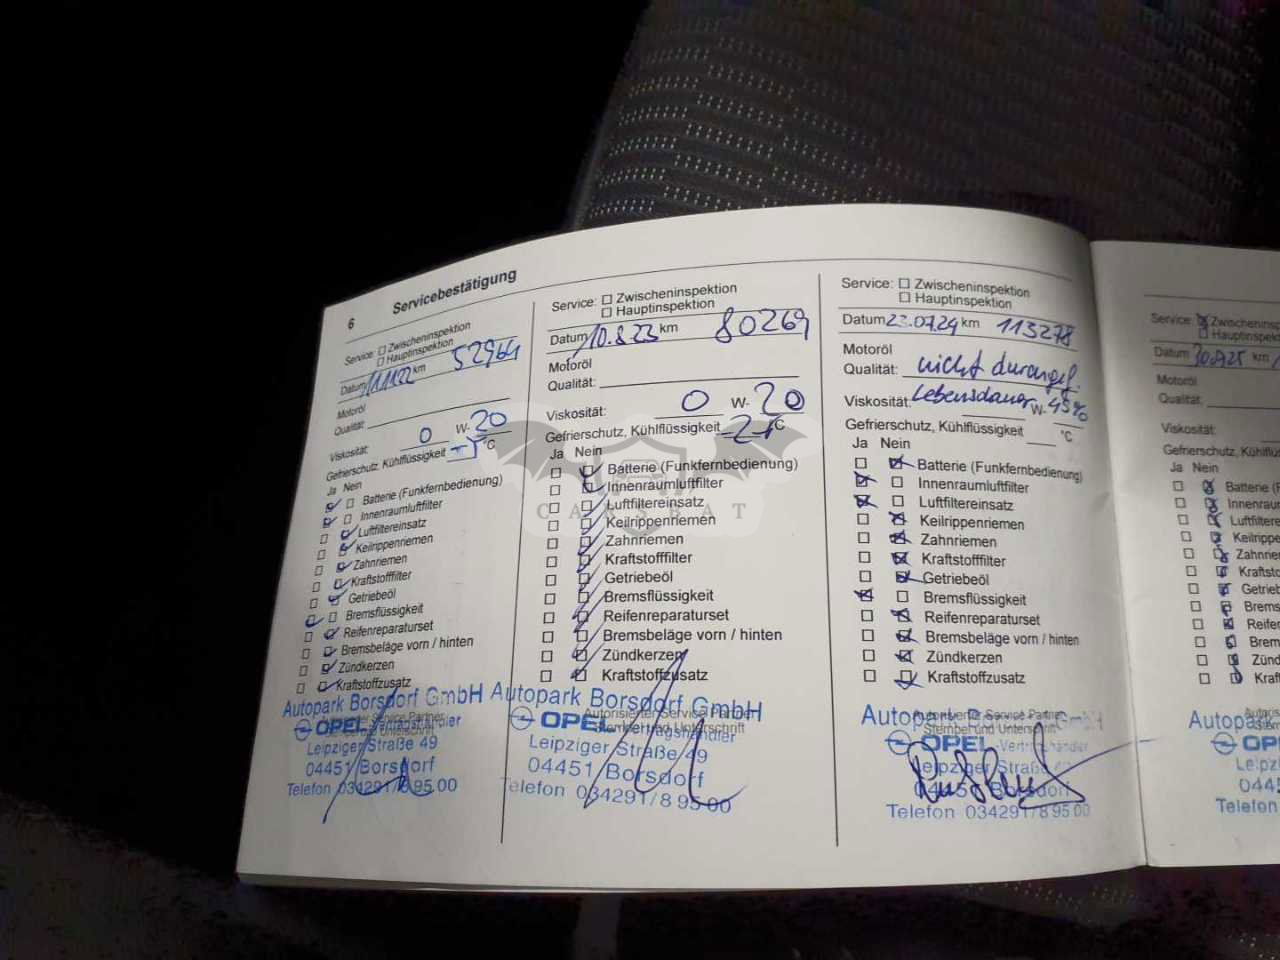 6 Servicebestätigung
Service: Zwischeninspektion
Hauptinspektion
Datum 11.11.22 km 52964
Motoröl
Qualität:
Viskosität: 0 W- 20
Gefrierschutz, Kühlflüssigkeit °C
Ja Nein
Batterie (Funkfernbedienung)
Innenraumluftfilter
Luftfiltereinsatz
Keilrippenriemen
Zahnriemen
Kraftstofffilter
Getriebeöl
Bremsflüssigkeit
Reifenreparaturset
Bremsbeläge vorn / hinten
Zündkerzen
Kraftstoffzusatz
Autopark Borsdorf GmbH
OPEL Vertragshändler
Leipziger Straße 49
04451 Borsdorf
Telefon 034291/8 95 00
Service: Zwischeninspektion
Hauptinspektion
Datum 10.8.23 km 80269
Motoröl
Qualität:
Viskosität: 0 W- 20
Gefrierschutz, Kühlflüssigkeit °C
Ja Nein
Batterie (Funkfernbedienung)
Innenraumluftfilter
Luftfiltereinsatz
Keilrippenriemen
Zahnriemen
Kraftstofffilter
Getriebeöl
Bremsflüssigkeit
Reifenreparaturset
Bremsbeläge vorn / hinten
Zündkerzen
Kraftstoffzusatz
Autopark Borsdorf GmbH
Autorisierter Service Partner
OPEL Vertragshändler
Stempel und Unterschrift
Leipziger Straße 49
04451 Borsdorf
Telefon 034291/8 95 00
CARSBAT
Service: Zwischeninspektion
Hauptinspektion
Datum 23.07.24 km 113278
Motoröl
Qualität: nicht durchgef.
Viskosität: Lebensdauer W- 45%
Gefrierschutz, Kühlflüssigkeit °C
Ja Nein
Batterie (Funkfernbedienung)
Innenraumluftfilter
Luftfiltereinsatz
Keilrippenriemen
Zahnriemen
Kraftstofffilter
Getriebeöl
Bremsflüssigkeit
Reifenreparaturset
Bremsbeläge vorn / hinten
Zündkerzen
Kraftstoffzusatz
Autopark Borsdorf GmbH
Autorisierter Service Partner
Stempel und Unterschrift
OPEL -Vertragshändler
Leipziger Straße
04451 Borsdorf
Telefon 034291/8 95 00
Service: Zwischeninspektion
Hauptinspektion
Datum km
Motoröl
Qualität:
Viskosität:
Gefrierschutz, Kühlflüssi
Ja Nein
Batterie (F
Innenraum
Luftfiltere
Keilrippe
Zahnrie
Kraftsto
Getrieb
Brems
Reifer
Brem
Zünd
Kraf
Autopark
OPE
Leipz
044
Telefon